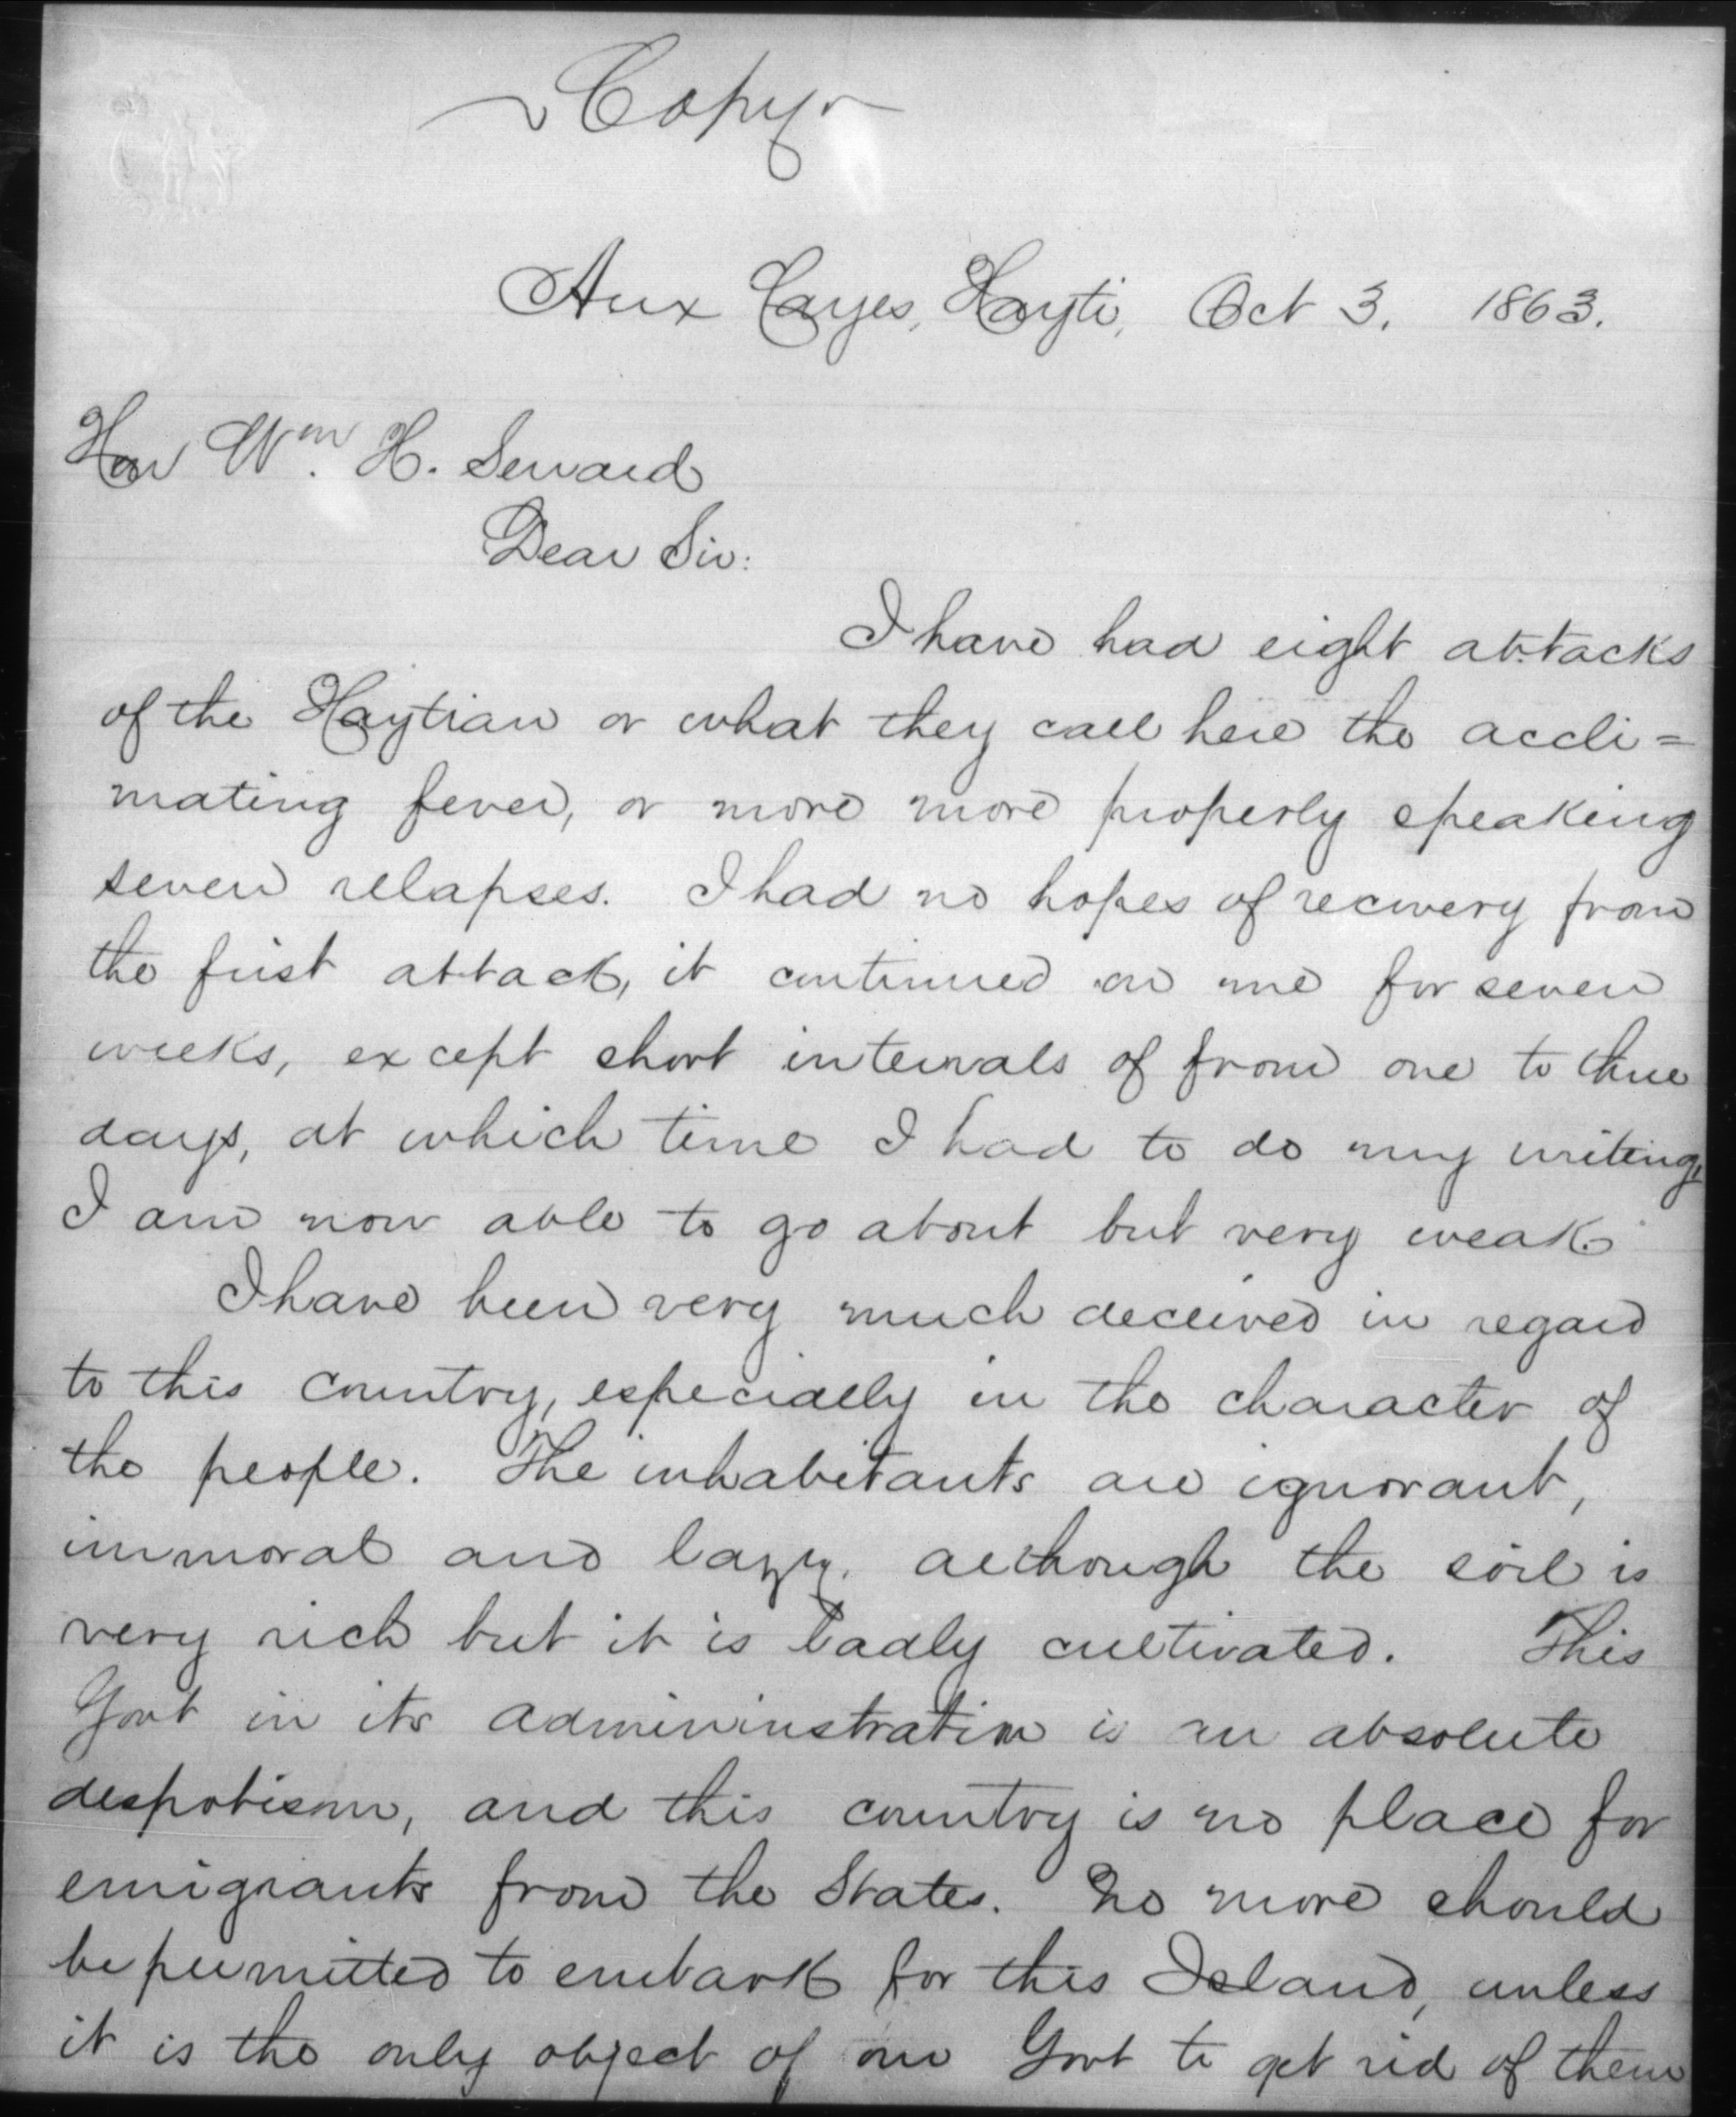 Copy
Aux Cayes, Hayti, Oct 3. 1863.
Hon Wm. H. Seward
Dear Sir:
I have had eight attacks
of the Haytian or what they call here the accli=
mating fever, or more more properly speaking
seven relapses. I had no hopes of recovery from
the first attack, it continued on me for seven
weeks, except short intervals of from one to three
days, at which time I had to do my writing,
I am now able to go about but very weak.
I have been very much deceived in regard
to this country, especially in the character of
the people. The inhabitants are ignorant,
immoral and lazy. although the soil is
very rich but it is badly cultivated. This
Govt in its admininistration is an absolute
despotism, and this country is no place for
emigrants from the States. No more should
be permitted to embark for this Island, unless
it is the only object of our Govt to get rid of them